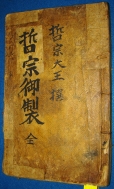 哲宗大王 撰
哲宗御製 全